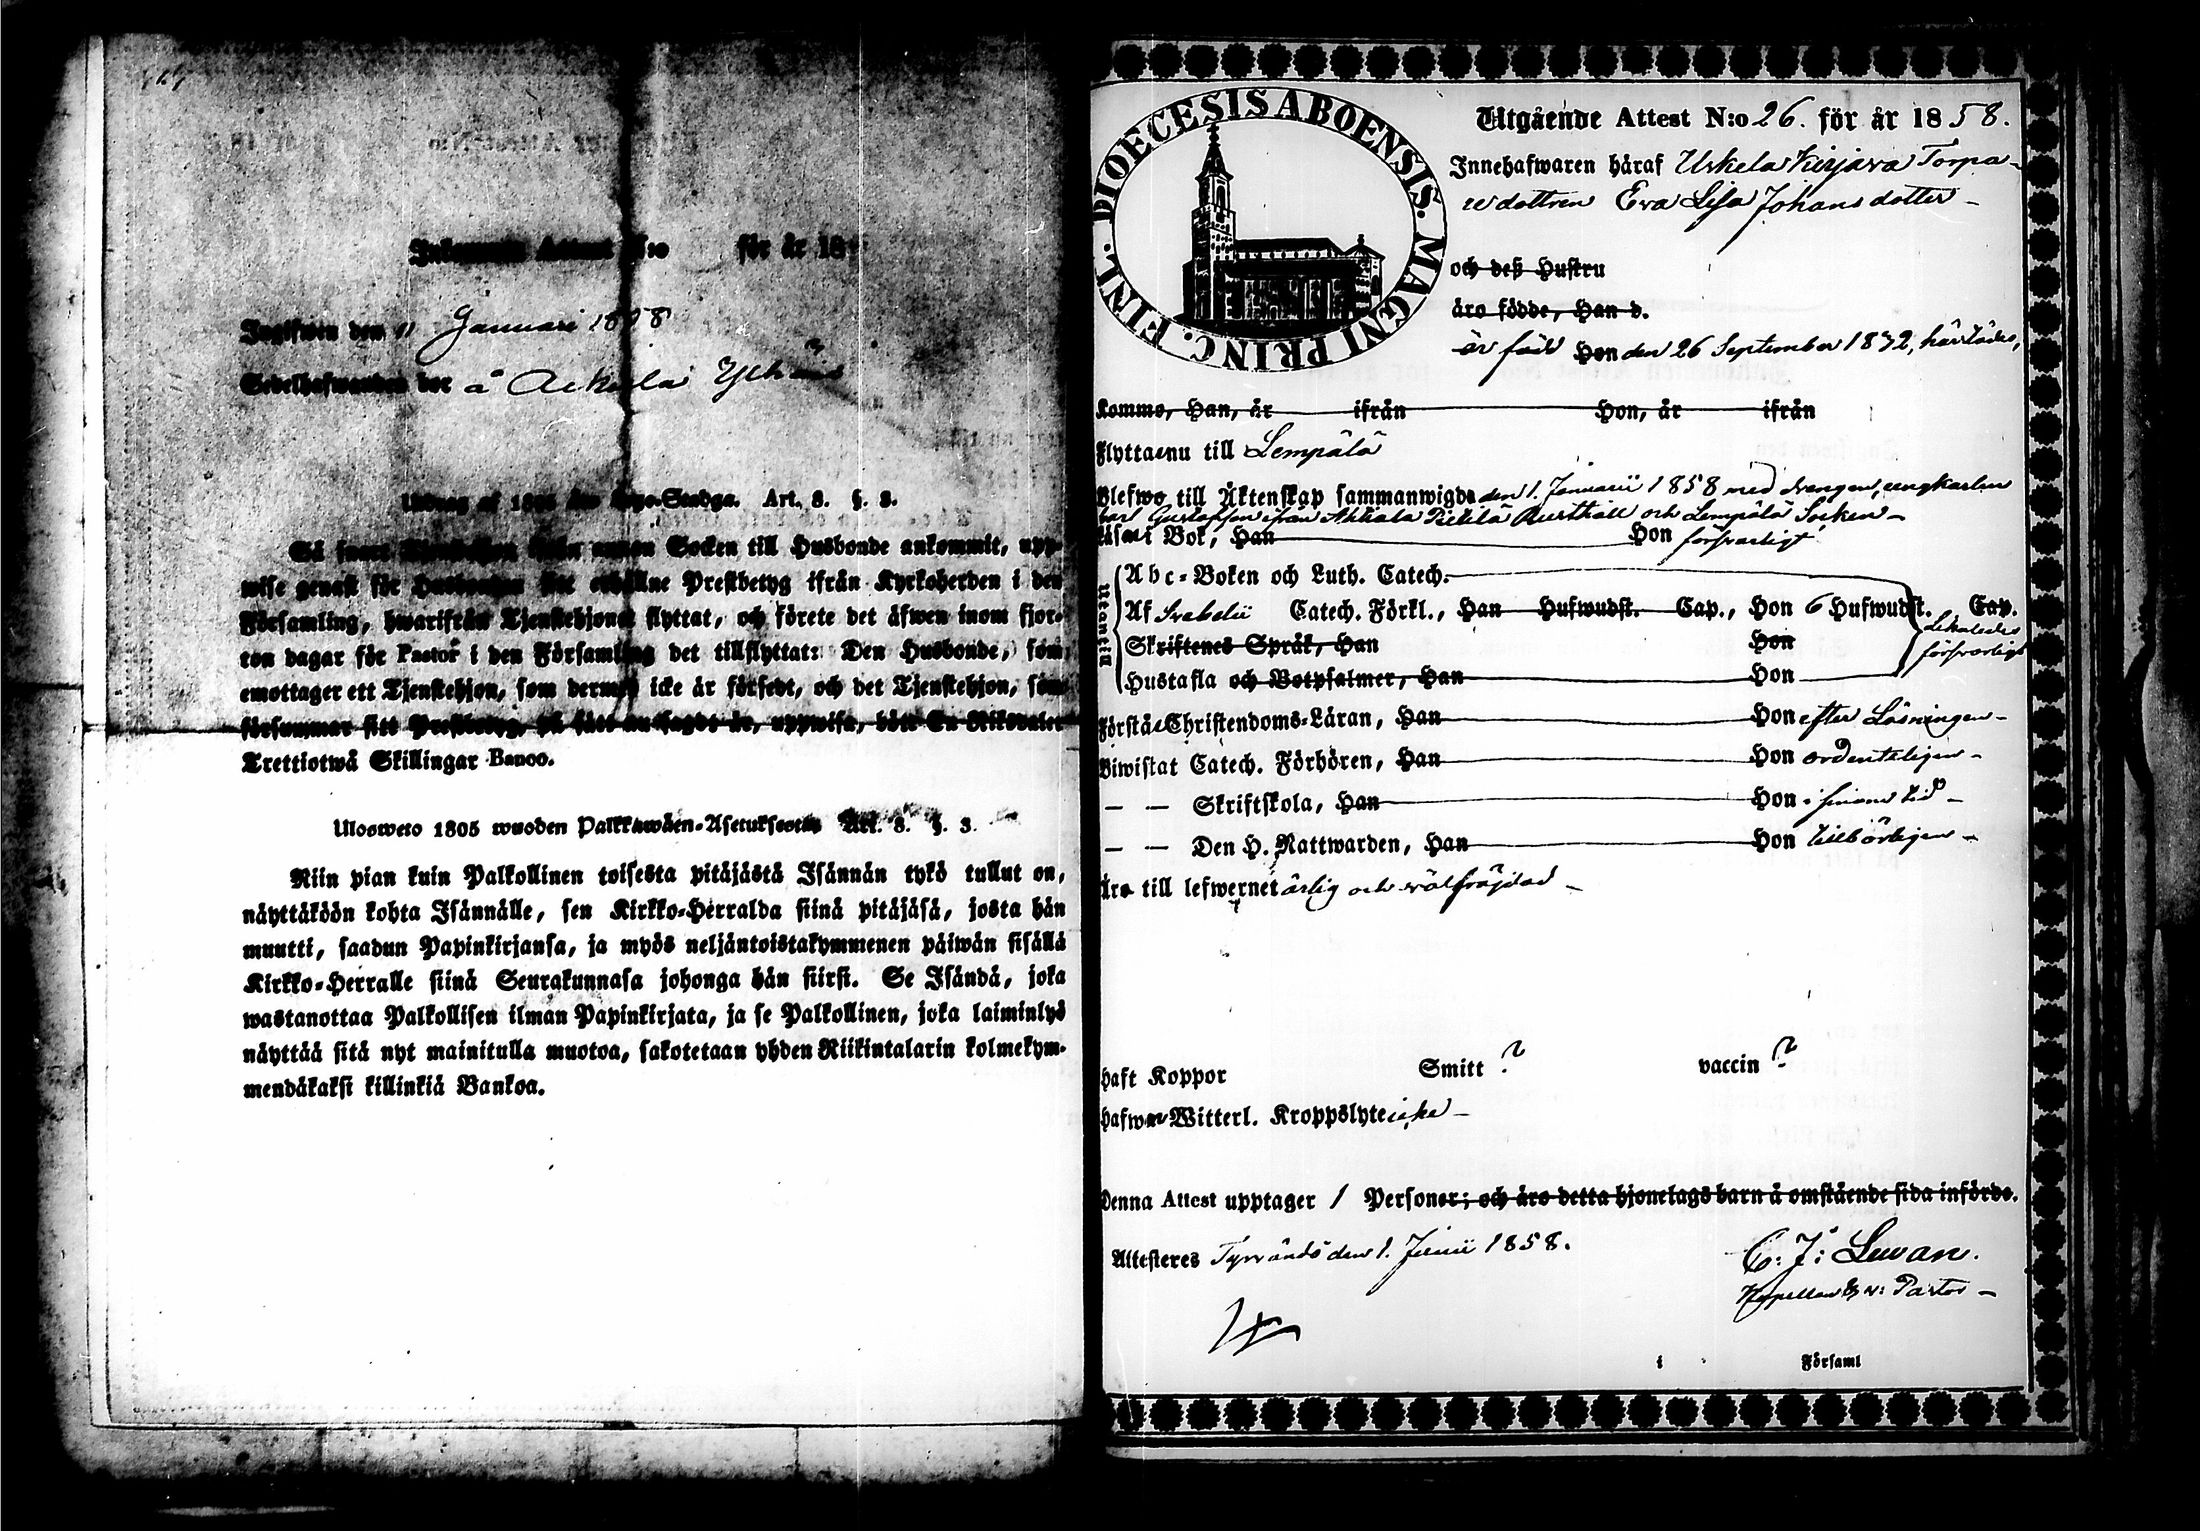 för år 18
den " Januari 18 8
bor å
Utdrag af Lego-Stadga. Art. 8. §. 3.
Socken till Husbonde ankommit, upp-
wise genast för Prestbetyg ifrån Kyrkoherden i den
Församling, hwarifrån Tjenstehjonet flyttat, och förete det äfwen inom fjor-
ton dagar för Pastor i den Församling det tillflyttat: Den Husbonde, som
emottager ett Tjenstehjon, som dermed icke är försedt, och det Tjenstehjon, som
försummar sitt Prestbetyg, på sätt nu sagdt är, uppwisa, böte En Riksdaler
Trettiotwå Skillingar Banco.
Ulosweto 1805 wuoden Palkkawäen-Asetuksesta Art. 8. §. 3.
Niin pian kuin Palkollinen toisesta pitäjästä Isännän tykö tullut on,
näyttäköön kohta Isännälle, sen Kirkko-Herralda siinä pitäjäsä, josta hän
muutti, saadun Papinkirjansa, ja myös neljäntoistakymmenen päiwän sisällä
Kirkko-Herralle siinä Seurakunnasa johonga hän siirsi. Se Isändä, joka
wastanottaa Palkollisen ilman Papinkirjata, ja se Palkollinen, joka laiminlyö
näyttää sitä nyt mainitulla muotoa, sakotetaan yhden Riikintalarin kolmekym-
mendäkaksi killinkiä Bankoa.
DIOECESIS ABOENSIS. MAGNI PRINC. FINL.
Utgående Attest N:o 26. för år 1858.
Innehafwaren häraf Urkela Kirjava Torpa-
redottren Eva Lisa Johansdotter -
och deß Hustru
äro födde, Han d.
är född Hon den 26 September 1832, härstädes,
Komme, Han, år ifrån Hon, år ifrån
Flytta nu till Lempälä
Blefwo till Äktenskap sammanwigde den 1. Januarii 1858 med drengen, ungkarlen
Carl Gustafsson ifrån Pietilä Rusthåll och Lempälä Socken -
Läsa i Bok, Han Hon försvarligt
Meantill
Abc-Boken och Luth. Catech.
Af Svebelii Catech. Förkl., Han Hufwudst. Cap., Hon 6 Hufwudst. Cap.
Skriftenes Språk, Han Hon
Hustafla och Botpsalmer, Han Hon
likaledes
försvarligt
Förstå Christendoms-Läran, Han Hon efter Läsningen -
Biwistat Catech. Förhören, Han Hon ordenteligen -
— — Skriftskola, Han Hon i sinom tid -
— — Den H. Nattwarden, Han Hon tillbörligen -
Äro till lefwernet ärlig och välfräjdad -
haft Koppor Smitt ? vaccin ?
hafwa Witterl. Kroppslyte icke -
Denna Attest upptager 1 Personer; och äro detta hjonelags barn å omstående sida införde.
Attesteres Tyrvändö den 1. Junii 1858.
C: J: Lewan.
Kapellan & v: Pastor -
i Församl